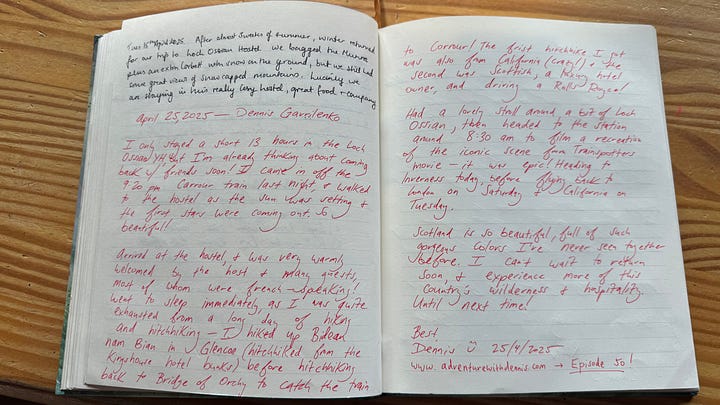 Tues 15th April 2025. After almost 3 weeks of summer, winter returned
for our trip to Loch Ossian Hostel. We bagged the Munros
plus an extra Corbett with snow on the ground, but we still had
some great views of snow capped mountains. Luckily we
are staying in this really cosy hostel, great food + company
april 25, 2025 — Dennis Gavrilenko
I only stayed a short 13 hours in the Loch
Ossian YH, but I'm already thinking about coming
back w/ friends soon! I came in off the
9:20 pm Corrour train last night, & walked
to the hostel as the sun was setting &
the first stars were coming out. So
beautiful!
Arrived at the hostel, & was very warmly
welcomed by the host & many guests,
most of whom were french-speaking!
Went to sleep immediately, as I was quite
exhausted from a long day of hiking
and hitchhiking — I hiked up Bidean
nam Bian in Glencoe (hitchhiked from the
Kingshouse hotel bunks) before hitchhiking
back to Bridge of Orchy to catch the train
to Corrour! The frist hitchhike I got
was also from California (crazy!) & the
second was Scottish, a hotel
owner, and driving a Rolls Royce!
Had a lovely stroll around a bit of Loch
Ossian, then headed to the station
around 8:30 am to film a recreation
of the iconic scene from Trainspotters
movie — it was epic! Heading to
Inverness today before flying back to
London on Saturday & California on
Tuesday.
Scotland is so beautiful, full of such
gorgeous colors I've never seen together
before. I can't wait to return
soon, & experience more of this
country's wilderness & hospitality.
Until next time!
Best,
Dennis Ü 25/4/2025
www.adventurewithdennis.com → Episode 50!